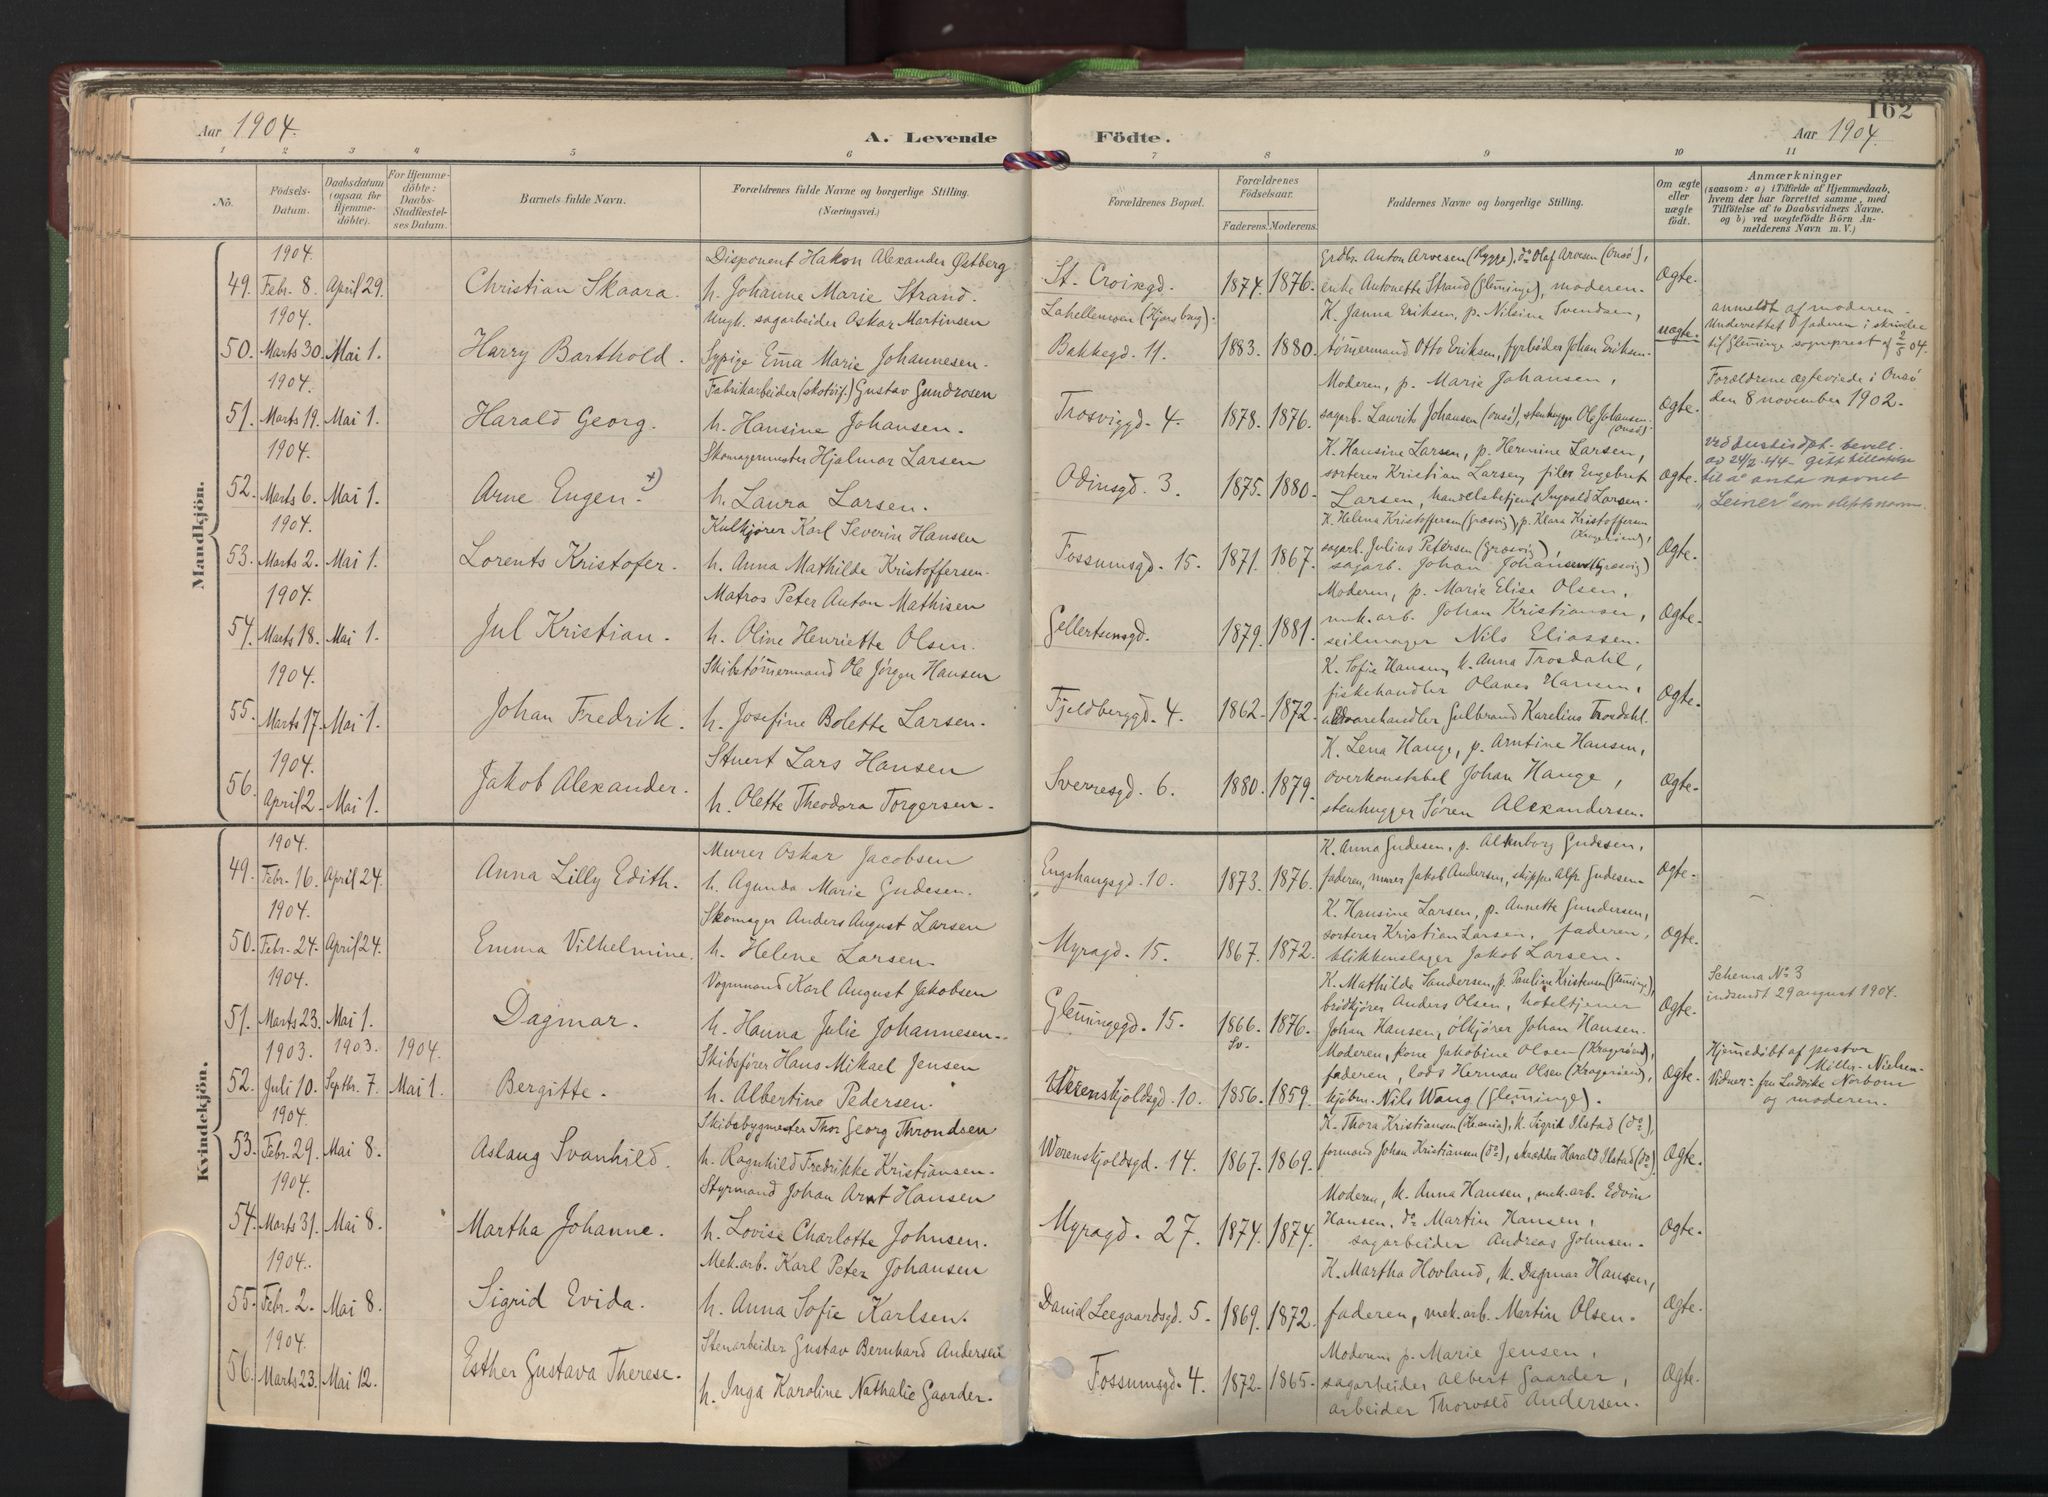 162
Aar 1904.
A. Levende Födte.
Aar 1904.
1 2 3 4 5 6 7 8 9 10 11
No.
Födsels-Datum.
Daabsdatum (ogsaa for Hjemmedöbte).
For Hjemmedöbte: Daabs-Stadfestelses Datum.
Barnets fulde Navn.
Forældrenes fulde Navne og borgerlige Stilling. (Næringsvei.)
Forældrenes Bopæl.
Forældrenes Födselsaar.
Faderens. Moderens.
Faddernes Navne og borgerlige Stilling.
Om ægte eller uægte födt.
Anmærkninger
(saasom: a) i Tilfælde af Hjemmedaab, hvem der har forrettet samme, med Tilföielse af to Daabsvidners Navne. og b) ved uægtefödte Börn Anmelderens Navn m. V.)
Mandkjön.
49. 1904. Febr. 8. April 29. Christian Skaara.
Disponent Hakon Alexander Østberg
h. Johanne Marie Strand.
St. Croixgd. 1874. 1876.
Grdbr. Anton Arvesen (Hygge), do Olaf Arvesen (Onsö),
enke Antonette Strand (Glemminge), moderen.
Ægte.
50. 1904. Marts 30. Mai 1. Harry Barthold.
Ungk. sagarbeider Oskar Martinsen
Sypige Emma Marie Johannesen.
Lahellemoen (Kjørsbug).
Bakkegd. 11. 1883. 1880.
K. Janna Eriksen, p. Nilsine Svendsen,
tömmermand Otto Eriksen, fyrbøder Johan Eriksen.
uægte.
anmeldt af moderen.
Underrettet faderen i skrivelse
til Glemminge sogneprest af 2/5 04.
51. 1904. Marts 19. Mai 1. Harald Georg.
Fabrikarbeider (skotöif.) Gustav Gundrosen
h. Hansine Johansen.
Trosviggd. 4. 1878. 1876.
Moderen, p. Marie Johansen,
sagarb. Laurits Johansen (Onsö), stenhugger Ole Johansen (Onsö).
Ægte.
Forældrene ægteviede i Onsö
den 8 november 1902.
52. 1904. Marts 6. Mai 1. Arne Eugen. +)
Skomagermester Hjalmar Larsen
h. Laura Larsen.
Odinsgd. 3. 1875. 1880.
K. Hansine Larsen, p. Hermine Larsen,
sorterer Kristian Larsen, filer Engebret
Larsen, handelsbetjent Ingvald Larsen.
Ægte.
Ved Justisdpt. bevill.
av 24/2-44 gitt tillatelse
til å anta navnet
"Leiner" som slektsnavn.
53. 1904. Marts 2. Mai 1. Lorents Kristofer.
Kulkjører Karl Severin Hansen
h. Anna Mathilde Kristoffersen.
Fossumsgd. 15. 1871. 1867.
K. Helena Kristoffersen (Græsvig), p. Klara Kristoffersen (Kragerøen),
sagarb. Julius Petersen (Græsvig),
sagarb. Johan Johansen (Græsvig)
Ægte.
54. 1904. Marts 18. Mai 1. Jul Kristian.
Matros Peter Anton Mathisen
h. Oline Henriette Olsen.
Gellertsensgd. 1879. 1881.
Moderen, p. Marie Elise Olsen,
mek.arb. Johan Kristiansen,
seilmager Nils Eliassen.
Ægte.
55. 1904. Marts 17. Mai 1. Johan Fredrik.
Skibstömmermand Ole Jörgen Hansen
h. Josefine Bolette Larsen.
Fjeldberggd. 4. 1862. 1872.
K. Sofie Hansen, k. Anna Trosdahl,
fiskehandler Olaves Hansen,
uldvarehandler Gulbrand Karelius Trosdahl.
Ægte.
56. 1904. April 2. Mai 1. Jakob Alexander.
Stuert Lars Hansen
h. Olette Theodora Torgersen.
Sverresgd. 6. 1880. 1879.
K. Lena Hauge, p. Arntine Hansen,
overkonstabel Johan Hauge,
stenhugger Sören Alexandersen.
Ægte.
Kvindekjön.
49. 1904. Febr. 16. April 24. Anna Lilly Edith.
Murer Oskar Jacobsen
h. Agunda Marie Gudesen.
Enghaugsgd. 10. 1873. 1876.
K. Anna Gudesen, p. Altenborg Gudesen,
faderen, murer Jakob Andersen, skipper Alfr. Gudesen.
Ægte.
50. 1904. Febr. 24. April 24. Emma Vilhelmine.
Skomager Anders August Larsen
h. Helene Larsen.
Myragd. 15. 1867. 1872.
K. Hansine Larsen, p. Annette Gundersen,
sorterer Kristian Larsen, faderen,
blikkenslager Jakob Larsen.
Ægte.
51. 1904. Marts 23. Mai 1. Dagmar.
Vognmand Karl August Jakobsen
h. Hanna Julie Johannesen.
Glemmingegd. 15. 1866. Sv. 1876.
K. Mathilde Sandersen, p. Pauline Kristensen (Glemminge),
brödkjører Anders Olsen, hoteltjener
Johan Hansen, ölkjører Johan Hansen.
Ægte.
Schema No 3
indsendt 29 august 1904.
52. 1903. Juli 10. 1903. Septbr. 7. 1904. Mai 1. Bergitte.
Skibsfører Hans Mikael Jensen
h. Albertine Pedersen.
Werenskjoldsgd. 10. 1856. 1859.
Moderen, kone Jakobine Olsen (Kragerøen),
faderen, lods Herman Olsen (Kragerøen),
kjöbm. Nils Wang (Glemminge).
Ægte.
Hjemmedöbt af pastor
Möller-Nielsen
Vidner: fru Ludvikke Norbom
og moderen.
53. 1904. Febr. 29. Mai 8. Aslaug Svanhild.
Skibsbygmester Thor Georg Throndsen
h. Ragnhild Fredrikke Kristiansen.
Werenskjoldsgd. 14. 1867. 1869.
K. Thora Kristiansen (Kr.ania), k. Sigrid Ilstad (do),
formand Johan Kristiansen (do), skrædder Harald Ilstad (do).
Ægte.
54. 1904. Marts 31. Mai 8. Martha Johanne.
Styrmand Johan Arnt Hansen
h. Lovise Charlotte Johnsen.
Myragd. 27. 1874. 1874.
Moderen, k. Anna Hansen, mek.arb. Edvin
Hansen, do Martin Hansen,
sagarbeider Andreas Johnsen.
Ægte.
55. 1904. Febr. 2. Mai 8. Sigrid Evida.
Mek.arb. Karl Peter Johansen
h. Anna Sofie Karlsen.
Daniel Leegaardsgd. 5. 1869. 1872.
K. Martha Hovland, k. Dagmar Hansen,
faderen, mek.arb. Martin Olsen.
Ægte.
56. 1904. Marts 23. Mai 12. Esther Gustava Therese.
Stenarbeider Gustav Bernhard Andersen
h. Inga Karoline Nathalie Gaarder.
Fossumsgd. 4. 1872. 1865.
Moderen, p. Marie Jensen,
sagarbeider Albert Gaarder,
arbeider Thorvald Andersen.
Ægte.